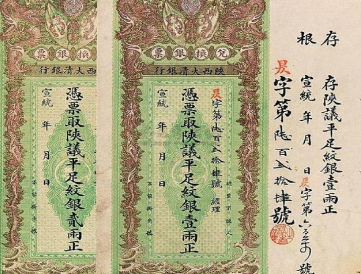 存根
存陝議平足紋銀壹兩正
宣統 年 月 日 字第六 号
字第陸百弍拾肆號
兌換銀票
陝西大清銀行
字第陸百弍拾肆號 經理
憑票取陝議平足紋銀壹兩正
宣統 年 月 日
換銀票
西大清銀行
憑票取陝議平足紋銀貳兩正
宣統 年 月 日